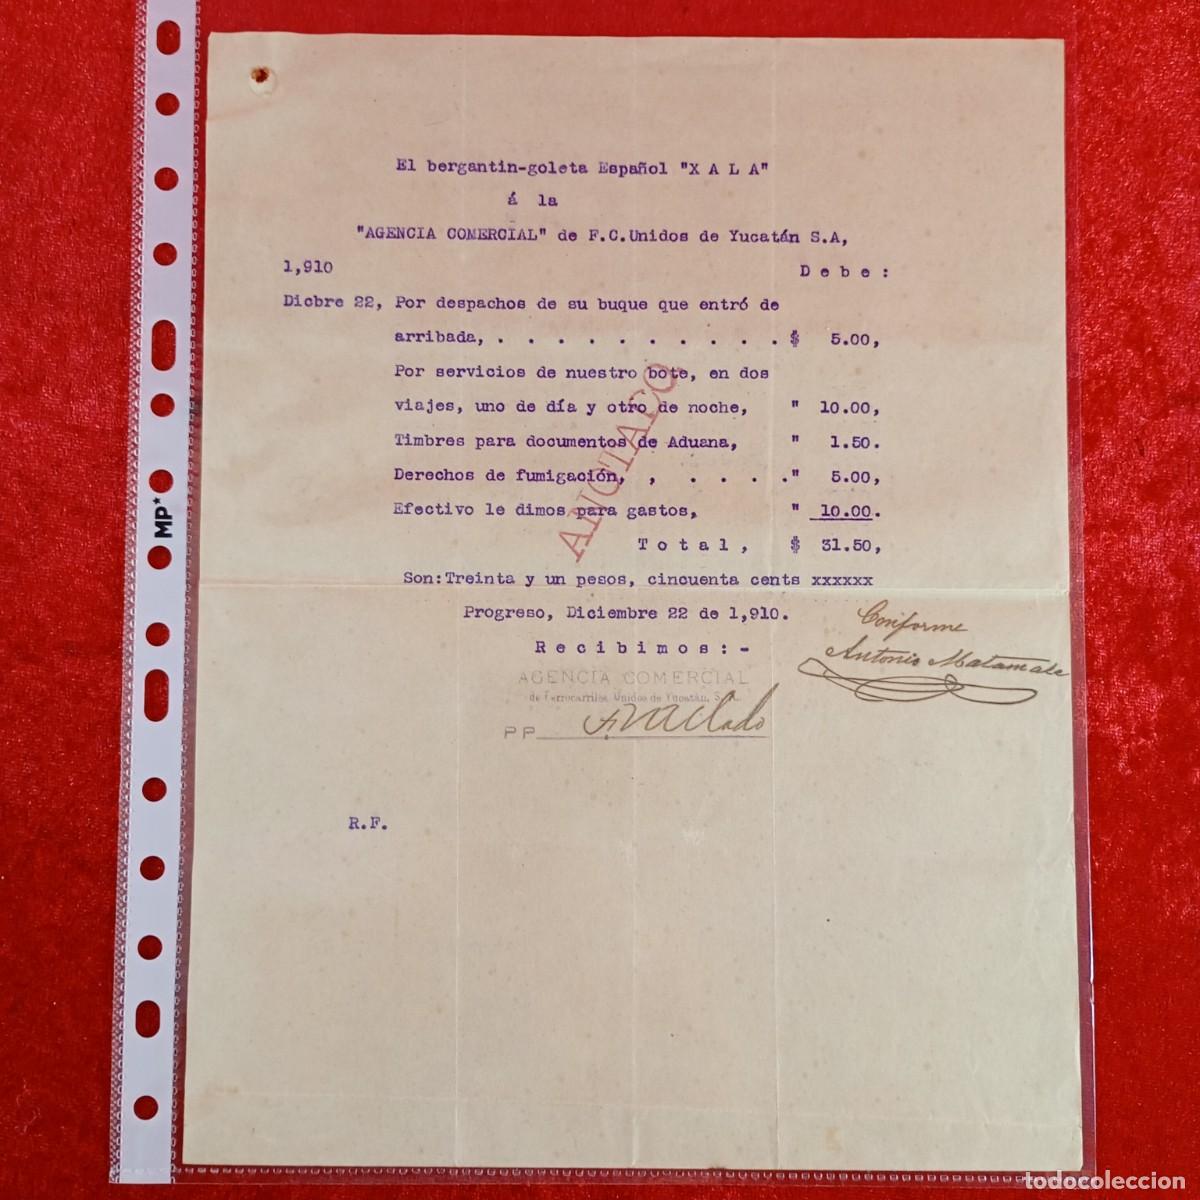 El bergantin-goleta Español "X A L A"
á la
"AGENCIA COMERCIAL" de F.C.Unidos de Yucatán S.A,
1,910 D e b e :
Dicbre 22, Por despachos de su buque que entró de
arribada, . . . . . . . . . . . $ 5.00,
Por servicios de nuestro bote, en dos
viajes, uno de día y otro de noche, " 10.00,
Timbres para documentos de Aduana, " 1.50.
Derechos de fumigación, , . . . . " 5.00,
Efectivo le dimos para gastos, " 10.00.
T o t a l , $ 31.50,
Son:Treinta y un pesos, cincuenta cents xxxxxx
Progreso, Diciembre 22 de 1,910.
R e c i b i m o s : -
Conforme
Antonio Matamala
AGENCIA COMERCIAL
de Ferrocarriles Unidos de Yucatán, S. A.
PP
R.F.
MP
todocoleccion